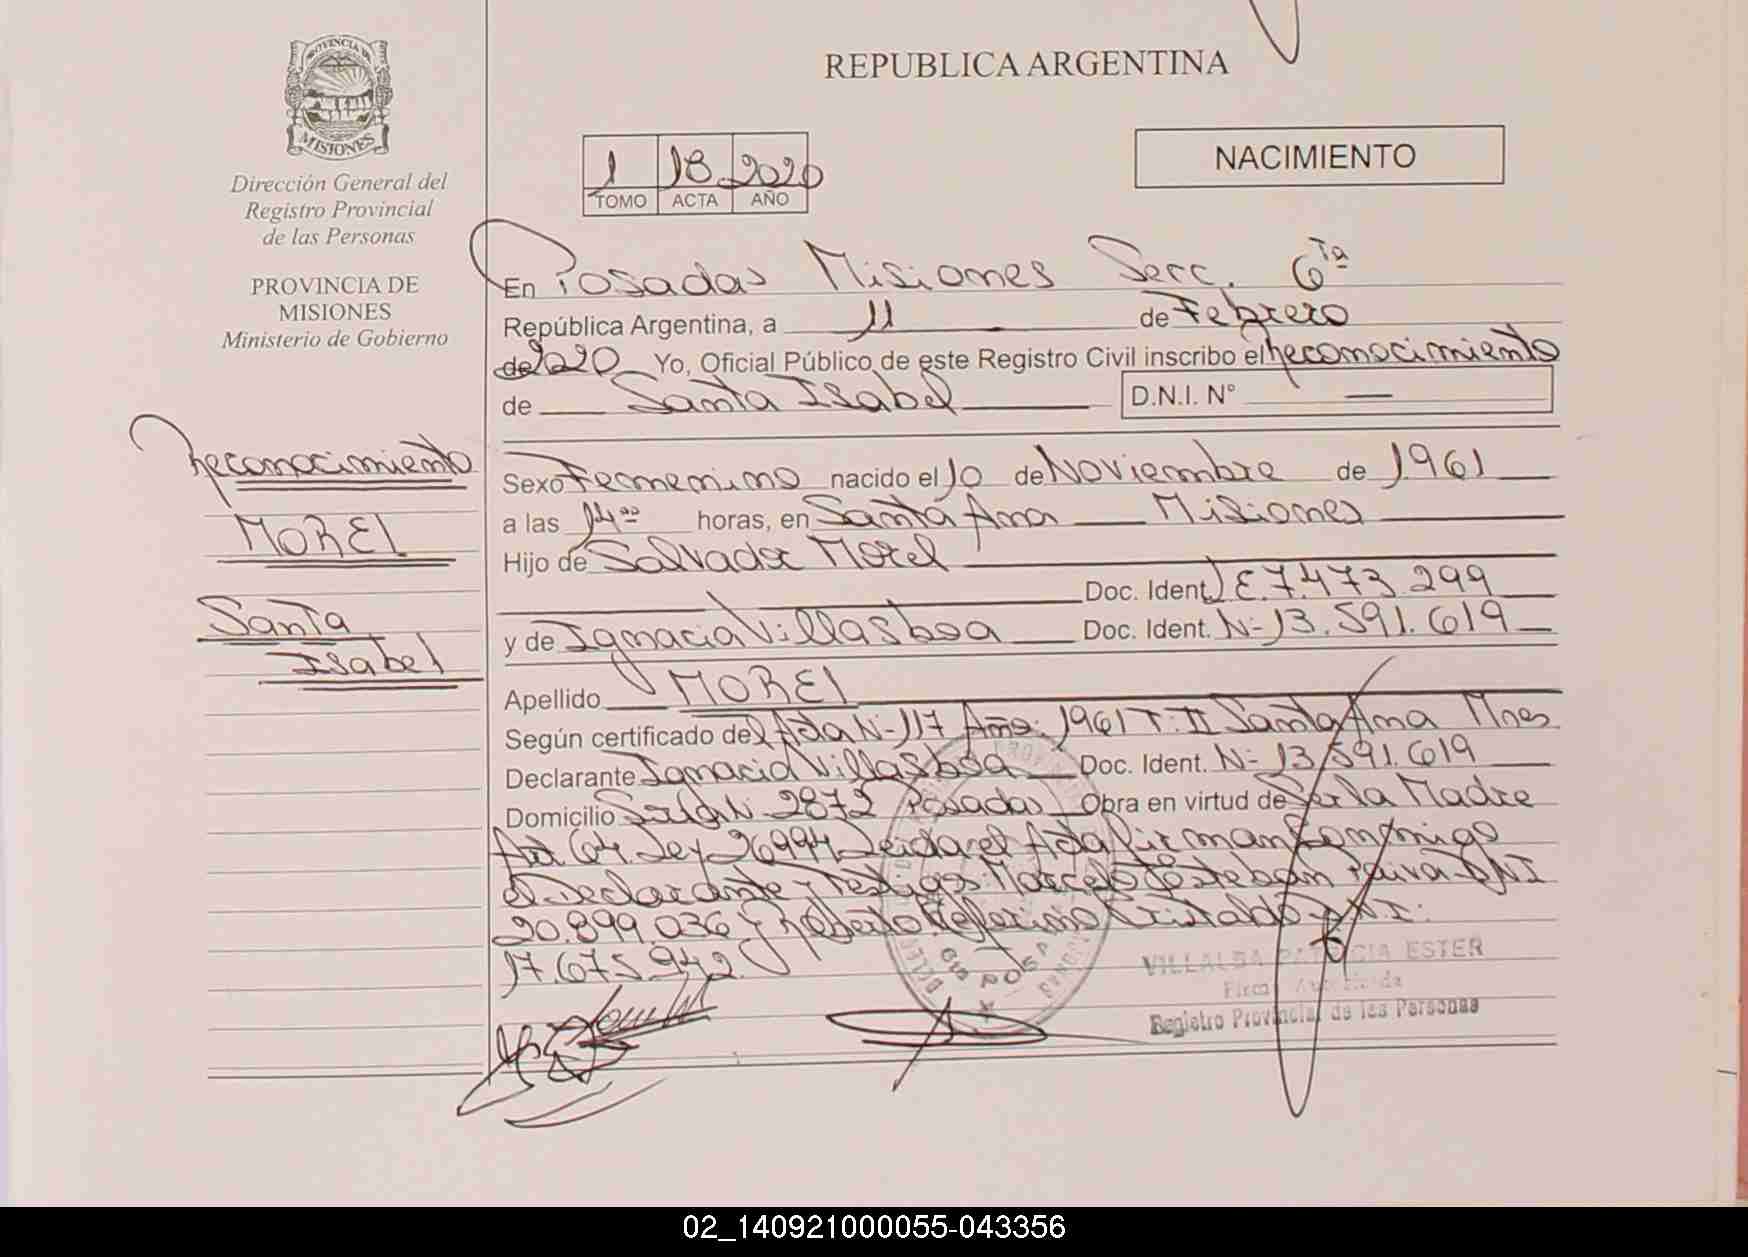 PROVINCIA DE
MISIONES
Dirección General del
Registro Provincial
de las Personas
PROVINCIA DE
MISIONES
Ministerio de Gobierno
Reconocimiento
MOREL
Santa
Isabel
REPUBLICA ARGENTINA
1 18 2020
TOMO ACTA AÑO
NACIMIENTO
En Posadas Misiones Secc. 6ta
República Argentina, a 11 de Febrero
de 2020 Yo, Oficial Público de este Registro Civil inscribo el Reconocimiento
de Santa Isabel D.N.I. N° —
Sexo Femenino nacido el 10 de Noviembre de 1961
a las 14 00 horas, en Santa Ana — Misiones
Hijo de Salvador Morel
Doc. Ident. LE. 7.473.299
y de Ignacia Villasboa Doc. Ident. N- 13.591.619
Apellido MOREL
Según certificado del Acta N- 117 Año: 1961 T: II Santa Ana Mnes
Declarante Ignacia Villasboa Doc. Ident. N- 13.591.619
Domicilio N- 2872 Posadas Obra en virtud de Ser la Madre
Art. 64. Ley 26994 Leida el Acta firman Conmigo
el Declarante y Testigos: Marcelo Esteban Paiva DNI
20.899.036 y Roberto Ceferino Cristaldo DNI:
17.675.942.
VILLALBA PATRICIA ESTER
Firma Autorizada
Registro Provincial de las Personas
02_140921000055-043356